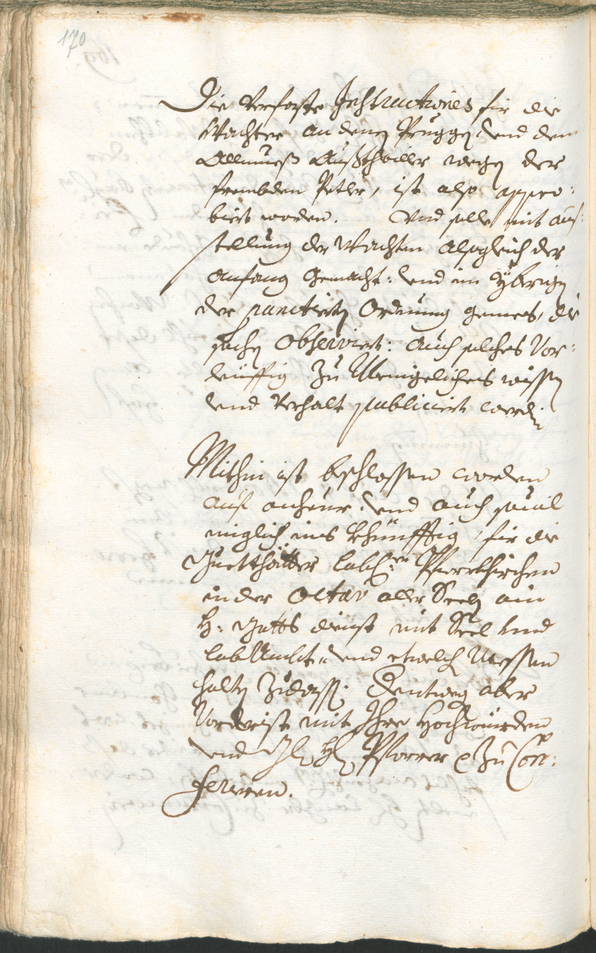 170
Die verfasste Instructiones für die
Wachter an denen Pruggen und dem
Allmueß Außthailler wegen der
frembden Petler, ist also appro¬
biert worden. Und solle mit auf¬
stellung der Wachten alsogleich der
anfang gemacht: und im ybrigen
der punctirten Ordnung gemeß, die
sachen observiert: auch solches vor¬
leuffig zu Menigeliches wissen
und verhalt publiciert werden.
Mithin ist beschlossen worden
auf anheur, und auch souil
müglich ins khünfftig für die
Guetthätter lobl: Pfarrkhirchen
in der Octav aller Seelen ain
H: Gotts dienst mit Seel und
lob Ambt, und etwelch Messen
halten zulassen. Dentweg aber
vorderist mit Ihre Hochwürden
und H: Pfarrer zu Con¬
feriren.